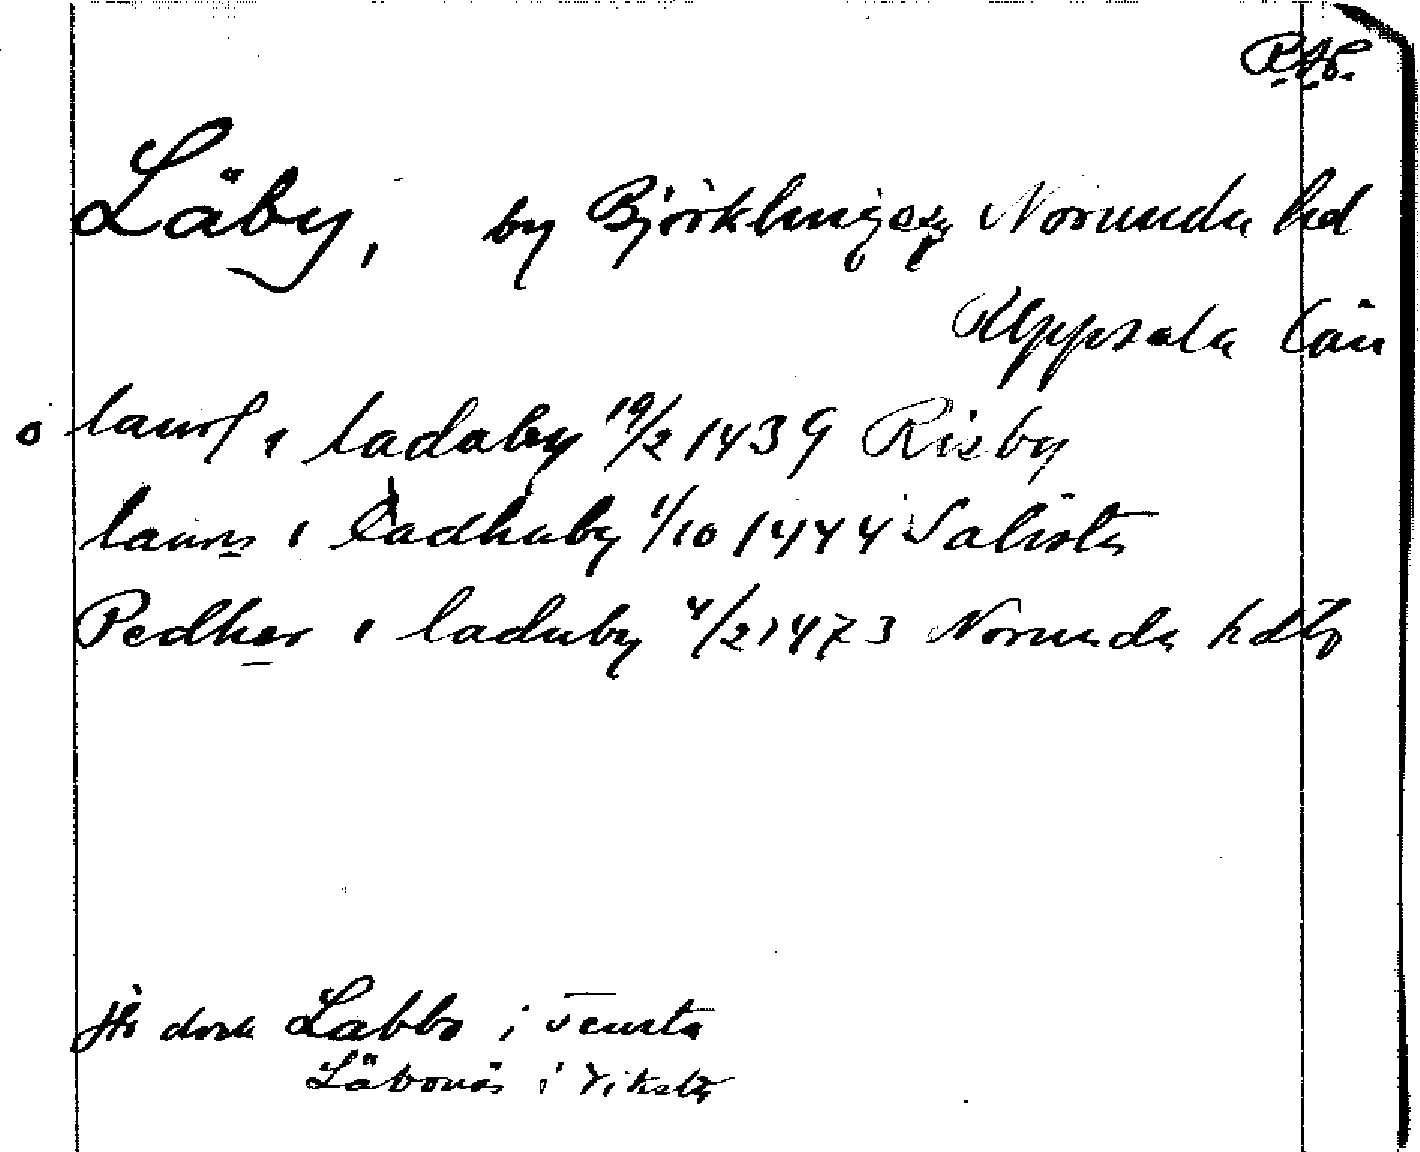 Läby, by Björklinge Norunda hd
Uppsala län
o laur i ladaby 19/2 1439 Risby
laurs i Ladhuby 1/10 1444 Salista
Pedher i laduby 4/2 1473 Norunda hdtg
jfr dock Labbo i Tensta
Läbonäs i Viksta